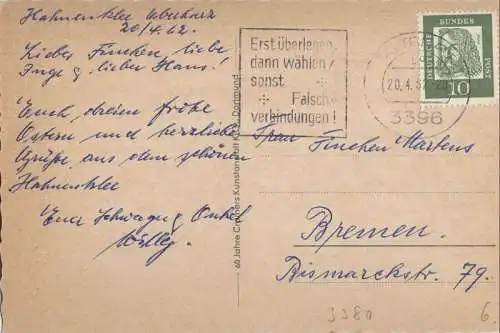 Hahnenklee Oberharz
20/4.62.
Liebes Finchen, liebe
Inge & lieber Hans!
Euch dreien frohe
Ostern und herzliche
Grüße aus dem schönen
Hahnenklee
Euer Schwager & Onkel
Willy.
60 Jahre Cramers Kunstanstalt Dortmund
Erst überlegen,
dann wählen
sonst
Falsch-
verbindungen!
20.4.
3396
DEUTSCHE
BUNDES
POST
10
Frau Finchen Martens
Bremen.
Bismarckstr. 79.
3380
6.